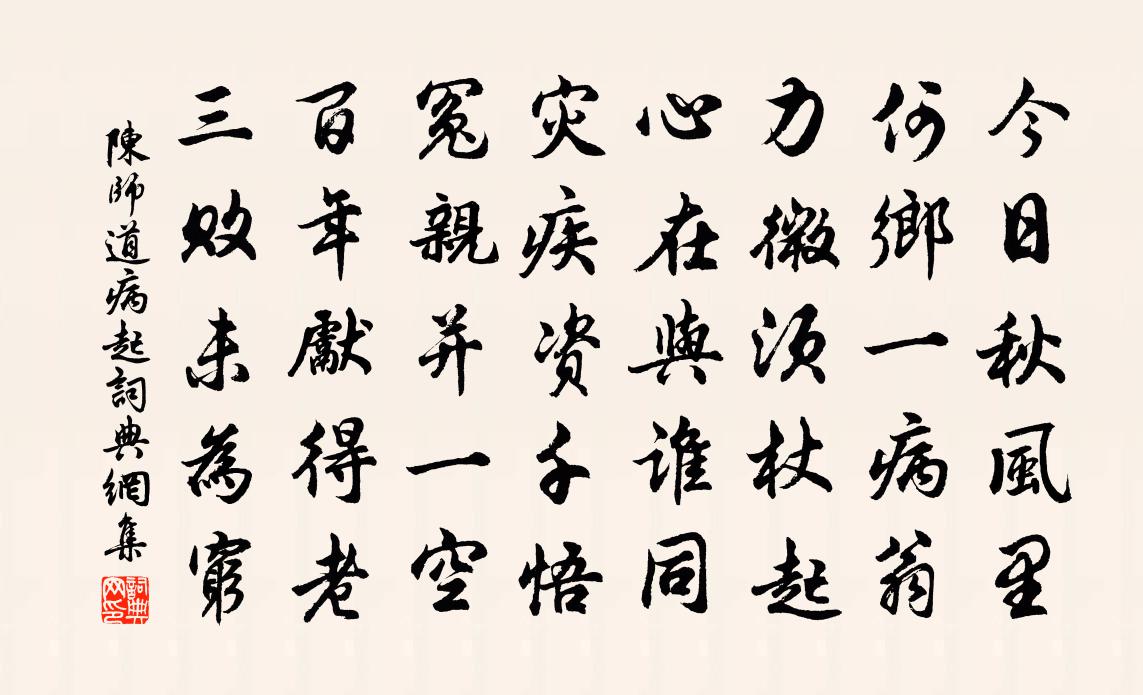 今日秋風里
何鄉一病翁
力微須杖起
心在與誰同
灾疾資千悟
冤親并一空
百年獻得老
三敗未為窮
陳師道病起詞典網集
詞典網印